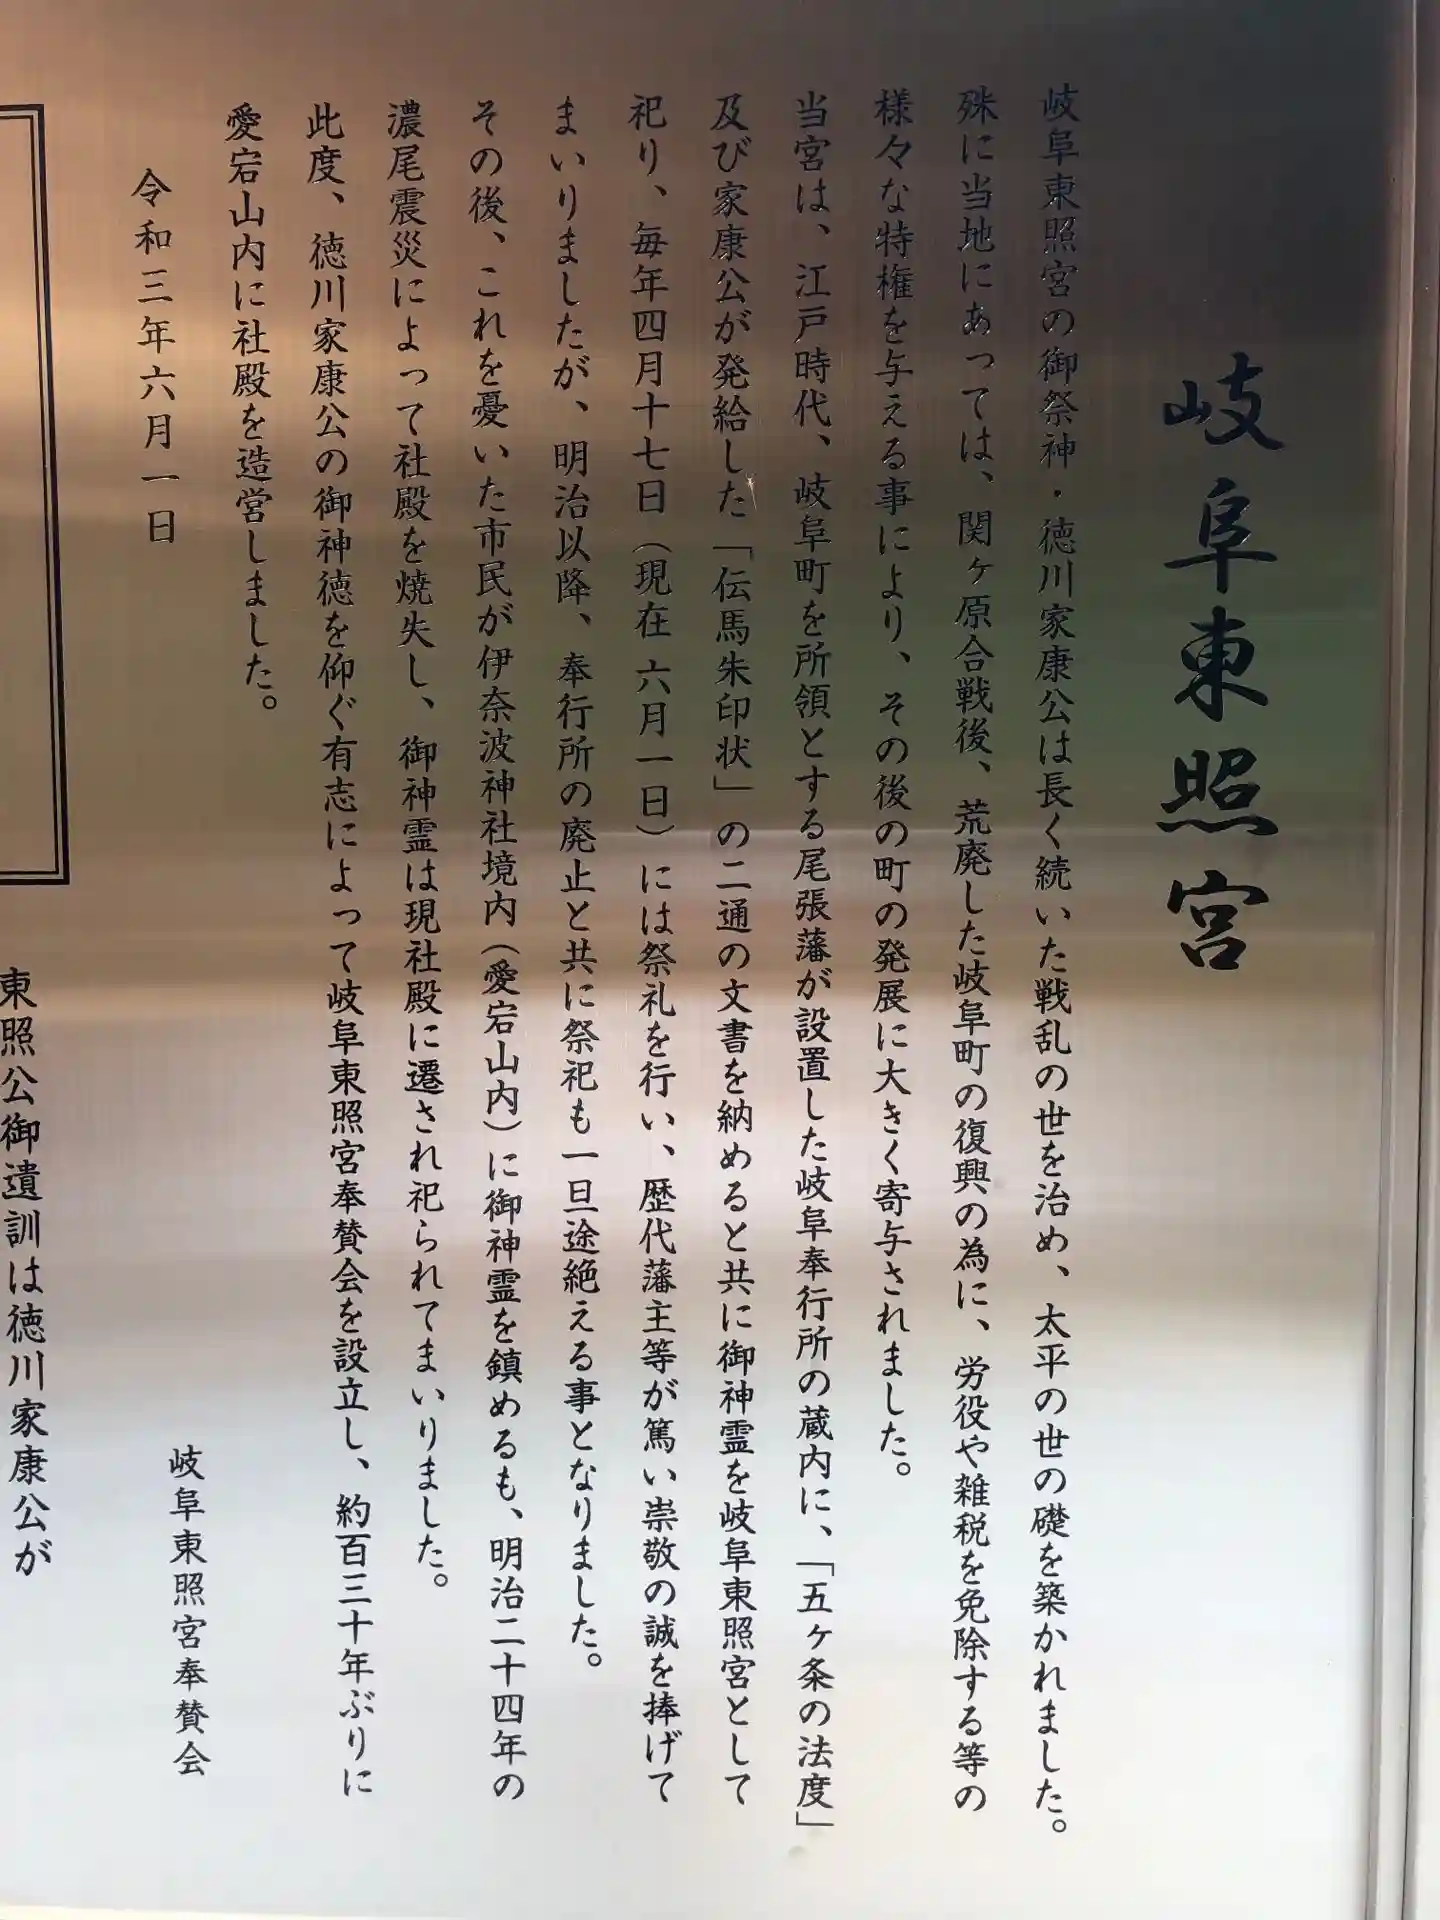 岐阜東照宮
岐阜東照宮の御祭神・徳川家康公は長く続いた戦乱の世を治め、太平の世の礎を築かれました。
殊に当地にあっては、関ヶ原合戦後、荒廃した岐阜町の復興の為に、労役や雑税を免除する等の
様々な特権を与える事により、その後の町の発展に大きく寄与されました。
当宮は、江戸時代、岐阜町を所領とする尾張藩が設置した岐阜奉行所の蔵内に、「五ヶ条の法度」
及び家康公が発給した「伝馬朱印状」の二通の文書を納めると共に御神霊を岐阜東照宮として
祀り、毎年四月十七日（現在 六月一日）には祭礼を行い、歴代藩主等が篤い崇敬の誠を捧げて
まいりましたが、明治以降、奉行所の廃止と共に祭祀も一旦途絶える事となりました。
その後、これを憂いた市民が伊奈波神社境内（愛宕山内）に御神霊を鎮めるも、明治二十四年の
濃尾震災によって社殿を焼失し、御神霊は現社殿に遷され祀られてまいりました。
此度、徳川家康公の御神徳を仰ぐ有志によって岐阜東照宮奉賛会を設立し、約百三十年ぶりに
愛宕山内に社殿を造営しました。
令和三年六月一日
岐阜東照宮奉賛会
東照公御遺訓は徳川家康公が